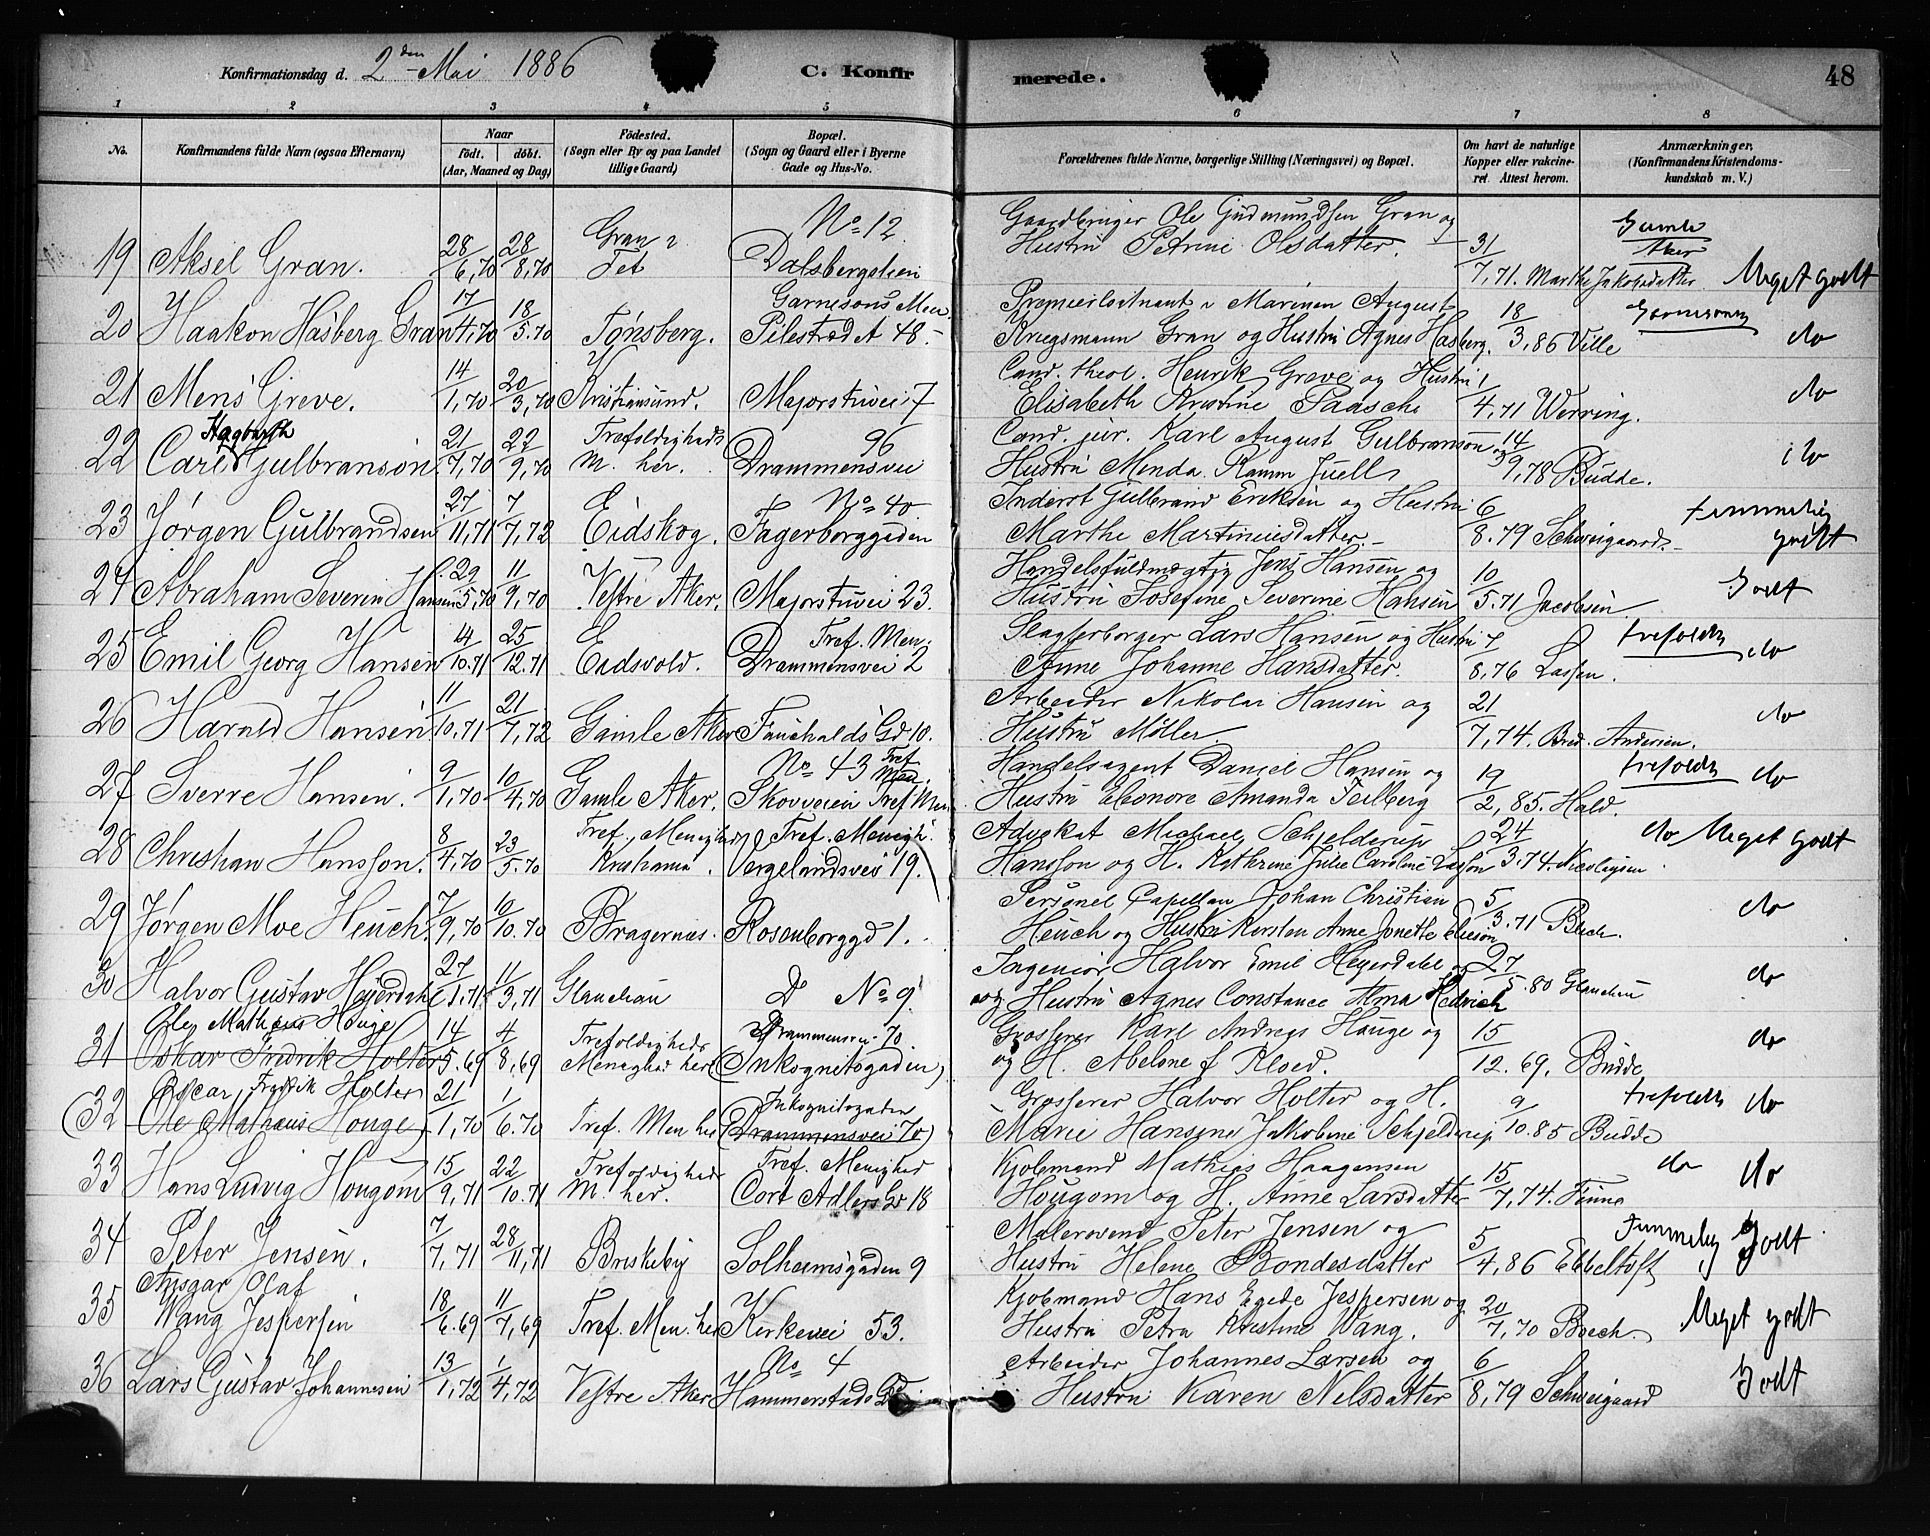 Konfirmationsdag d. 2den Mai 1886 C. Konfirmerede. 48
1 2 3 4 5 6 7 8
No. Konfirmandens fulde Navn (ogsaa Efternavn) Naar født. døbt. (Aar, Maaned og Dag) Fødested. (Sogn eller By og paa Landet tillige Gaard) Bopæl. (Sogn og Gaard eller i Byerne Gade og Hus-No. Forældrenes fulde Navne, borgerlige Stilling (Næringsvei) og Bopæl. Om havt de naturlige Kopper eller vakcineret. Attest herom. Anmærkninger. (Konfirmandens Kristendomskundskab m. V.)
No 12 Gaardbruger Ole Gudmundsen Gran og Gamle
19 Aksel Gran. 28/6,70 28/8,70 Gran i Fet Dalsbergstien Hustru Petrine Olsdatter. 31/7,71. Marthe Jakobsdatter Aker Meget godt
Garnisons Men. Premierløitnant i Marinen August Garnisons
20 Haakon Hasberg Gran 17/4,70 18/5.70 Tønsberg. Pilestrædet 48. Kriegsmann Gran og Hustru Agnes Hasberg. 18/3,86 Ville do
Cand. theol. Henrik Greve og Hustru
21 Mens Greve. 14/1,70 20/3,70 Kristiansund. Majorstuvei 7 Elisabeth Kristine Paasche 1/4,71 Werring. do
Hagbarth Trefoldigheds 96 Cand. jur. Karl August Gulbranson
22 Carl Gulbranson 21/7,70 22/9,70 M. her. Drammensvei Hustru Menda Ramm Juell 14/9,78 Budde. do
No 40 Inderst Gulbrand Eriksen og Hustru temmelig
23 Jørgen Gulbrandsen 27/11,71 7/7,72 Eidskog. Fagerborggaden Marthe Martiniusdatter. 6/8.79 Schweigaard. godt
Handelsfuldmægtig Jens Hansen og
24 Abraham Severin Hansen 29/5,70 11/9,70 Vestre Aker. Majorstuvei 23. Hustru Josefine Severine Hansen 10/5.71 Jacobsen Godt
Tref. Men. Slagterborger Lars Hansen og Hustru trefoldh
25 Emil Georg Hansen 14/10.71 25/12.71 Eidsvold. Drammensvei 2 Anne Johanne Hansdatter. 7/8,76 Lassen. do
Arbeider Nikolai Hansen og
26 Harald Hansen 11/10,71 21/7,72 Gamle Aker Fauchalds Gd 10. Hustru Møller 21/7,74. Bred. Andersen. do
No 43 Tref. Men. Handelsagent Daniel Hansen og trefoldh
27 Sverre Hansen. 9/1,70 10/4,70 Gamle Aker. Skovveien Tref. Men. Hustru Eleonore Amanda Feilberg 19/2,85. Hald. do
Tref. Menighed Tref. Menigh. Advokat Michael Schjelderup
28 Christian Hansson. 8/4,70 23/5.70 Kristiania. Vergelandsvei 19. Hansson og H. Kathrine Julie Caroline Lasson 24/3.74. Nicolaysen do Meget godt
Personel Capellan Johan Christian
29 Jørgen Moe Heuch. 7/9,70 10/10.70 Bragernes. Rosenborggd 1. Heuch og Hustru Kirsten Anne Jonette Elieson 5/3.71 Buch. do
Ingeniør Halvor Emil Heyerdahl og
30 Halvor Gustav Heyerdahl 27/1,71 11/3,71 Glauchau D No 9 og Hustru Agnes Constance Alma Hedrich 27/5.80 Glauchau do
Ole Mathæus Houge Trefoldigheds Drammensvei 70. Grosserer Karl Andreas Hauge og
31 Oskar Fredrik Holter 14/5.69 4/8,69 Menighed her (Inkognitogaden) og H. Abelone f. Kloed. 15/12.69. Budde do
Oscar Fredrik Holter Inkognitogaden Grosserer Halvor Holter og H. trefoldh
(32 Ole Mathæus Houge) 21/1,70 1/6.70 Tref. Men her (Drammensvei 70) Marie Hansine Jakobine Schjelderup 9/10.85 Budde do
Trefoldigheds Tref. Menighed Kjøbmand Mathias Haagensen do
33 Hans Ludvig Hougom 15/9,71 22/10.71 M. her. Cort Adlers Gd 18 Hougom og H. Anne Larsdatter 15/7,74. Finne do
Malersvend Peter Jensen og
34 Peter Jensen. 7/7,71 28/11,71 Briskeby Solheimsgaden 9 Hustru Helene Bondesdatter 5/4,86 Ebbeltoft temmelig Godt
Ansgar Olaf Kjøbmand Hans Egede Jespersen og
35 Wang Jespersen 18/6.69 11/7,69 Tref. Men. her Kirkevei 53. Hustru Petra Kristine Wang. 20/7,70 Boech. Meget godt
No 4 Arbeider Johannes Larsen og
36 Lars Gustav Johannesen 13/1,72 1/4,72 Vestre Aker Hammerstads Gd Hustru Karen Nilsdatter 6/8,79 Schweigaard Godt